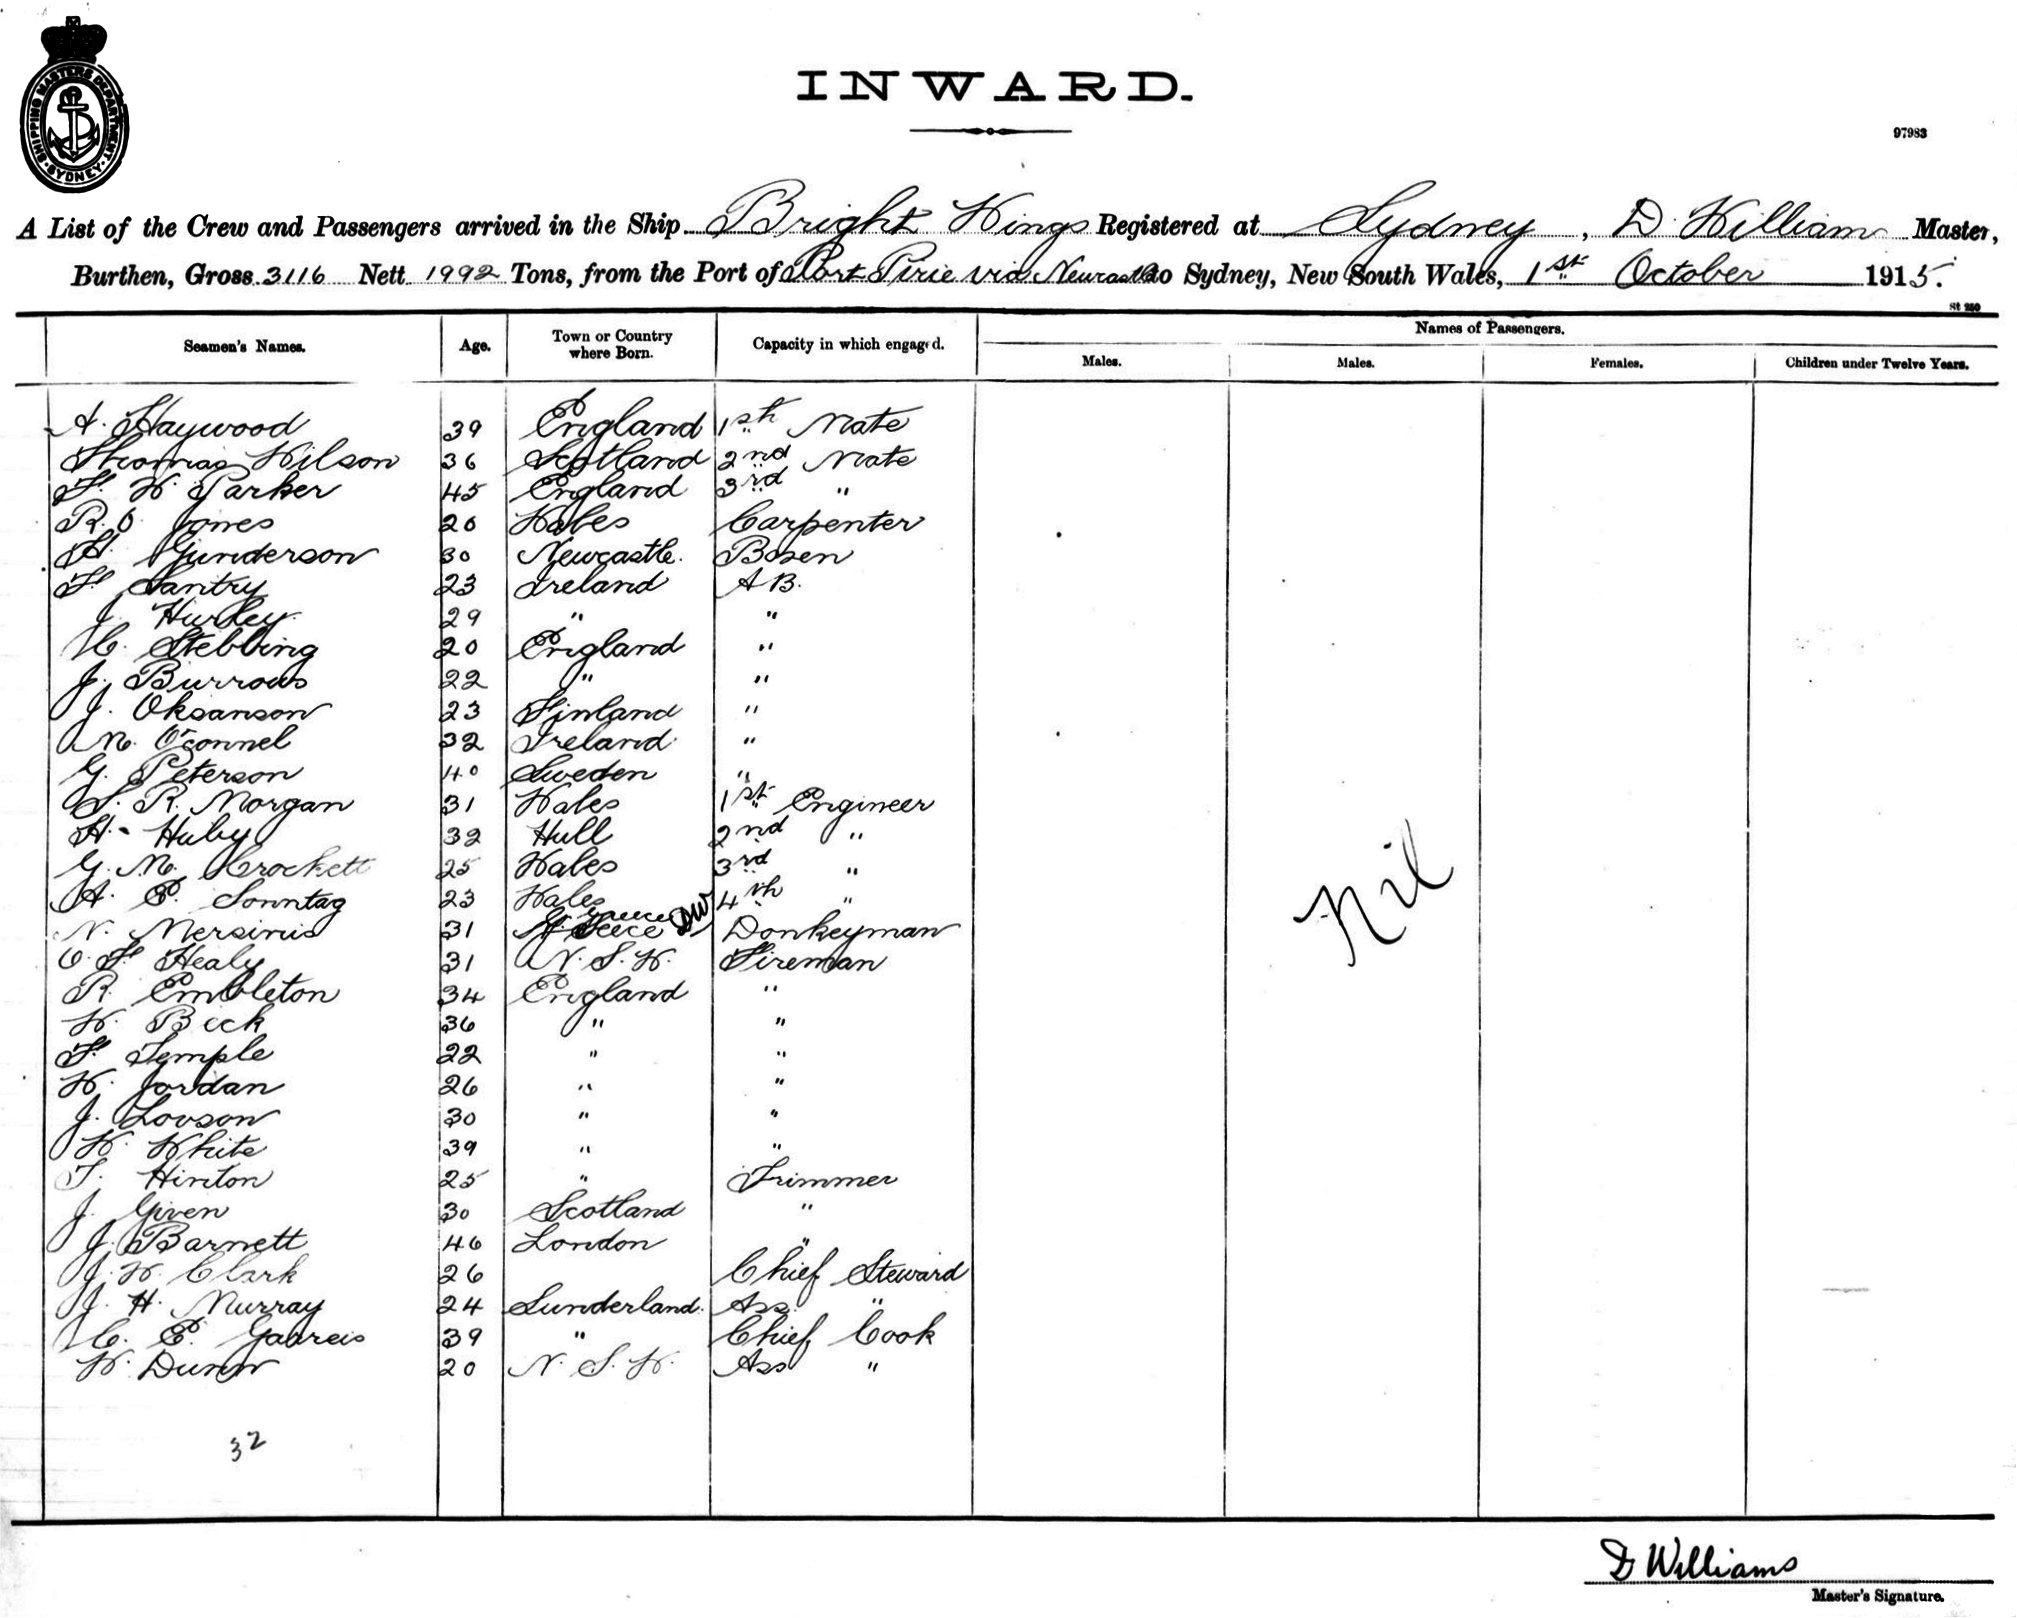 SHIPPING MASTERS DEPARTMENT
SYDNEY
INWARD.
97983
A List of the Crew and Passengers arrived in the Ship Bright Wings Registered at Sydney, D. Williams Master,
Burthen, Gross 3116 Nett 1992 Tons, from the Port of Port Pirie via Newcastle to Sydney, New South Wales, 1st October 1915.
St 250
Seamen's Names. Age. Town or Country where Born. Capacity in which engaged. Names of Passengers.
Males. Males. Females. Children under Twelve Years.
A. Haywood 39 England 1st Mate
Thomas Wilson 36 Scotland 2nd Mate
F. W. Parker 45 England 3rd "
R. O. Jones 20 Wales Carpenter
H. Gunderson 30 Newcastle. Bosen
F. Santry 23 Ireland A.B.
J. Hurley 29 " "
C. Stebbing 20 England "
J. Burrows 22 " "
J. Oksanson 23 Finland "
M. O'connel 32 Ireland "
G. Peterson 40 Sweden "
S. R. Morgan 31 Wales 1st Engineer
H. Huby 32 Hull 2nd "
G. M. Crockett 25 Wales 3rd "
A. E. Sonntag 23 Wales 4th "
N. Mersinis 31 Greece DW Donkeyman
C. F. Healy 31 N. S. W. Fireman
R. Embleton 34 England "
W. Beck 36 " "
F. Temple 22 " "
W. Jordan 26 " "
J. Lovson 30 " "
W. White 39 " "
T. Hinton 25 " Trimmer
J. Given 30 Scotland "
J. Barnett 46 London "
J. W. Clark 26 Chief Steward
J. H. Murray 24 Sunderland. Ass. "
C. E. Gaareis 39 " Chief Cook
W. Dunn 20 N. S. W. Ass "
Nil
32
D Williams
Master's Signature.